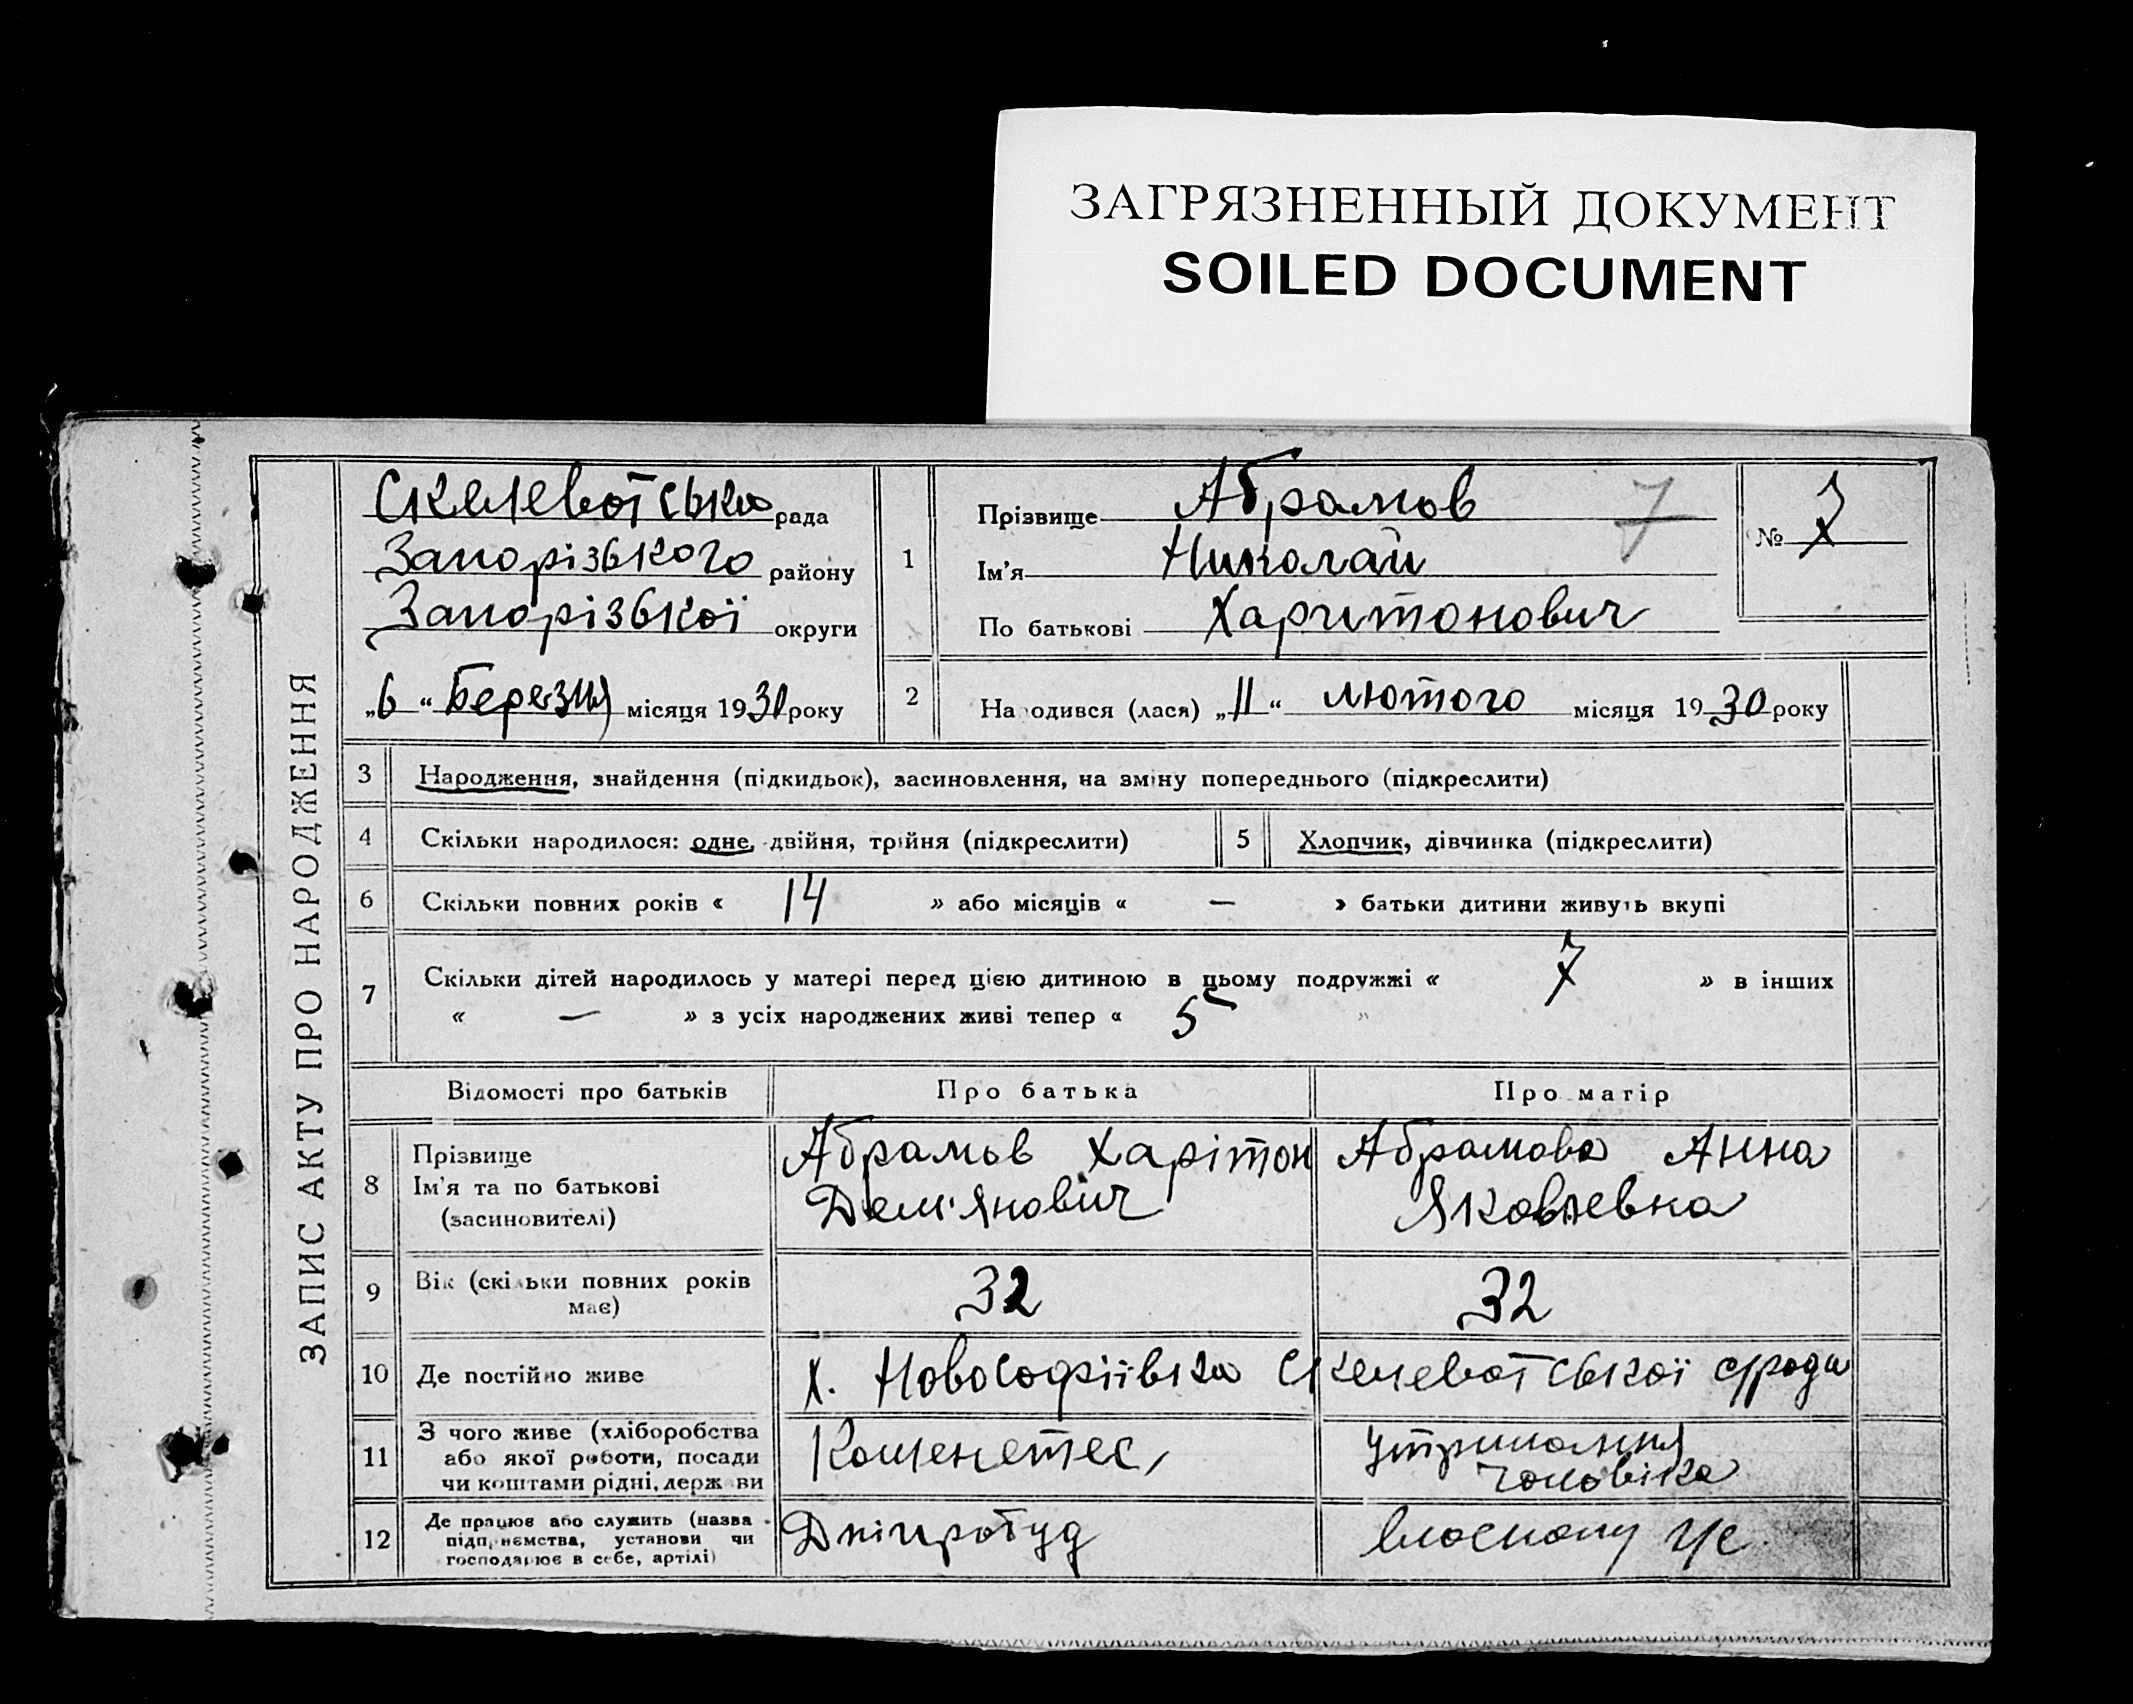 ЗАГРЯЗНЕННЫЙ ДОКУМЕНТ
SOILED DOCUMENT
ЗАПИС АКТУ ПРО НАРОДЖЕННЯ
Скелеватська рада
Запорізького району
Запорізької округи
„6“ Березня місяця 1930 року
1
Прізвище Абрамов 7
Ім'я Николай
По батькові Харитонович
№ 7
2 Народився (лася) „11“ лютого місяця 1930 року
3 Народження, знайдення (підкидьок), засиновлення, на зміну попереднього (підкреслити)
4 Скільки народилося: одне, двійня, трійня (підкреслити) 5 Хлопчик, дівчинка (підкреслити)
6 Скільки повних років « 14 » або місяців « — » батьки дитини живуть вкупі
7 Скільки дітей народилось у матері перед цією дитиною в цьому подружжі « 7 » в інших
« — » з усіх народжених живі тепер « 5 »
Відомості про батьків Про батька Про матір
8 Прізвище
Ім'я та по батькові
(засиновителі)
Абрамов Харітон
Дем'янович
Абрамова Анна
Яковлевна
9 Вік (скільки повних років
має)
32 32
10 Де постійно живе х. Новософіївка Скелеватської с/ради
11 З чого живе (хліборобства
або якої роботи, посади
чи коштами рідні, держави
утримання
чоловіка
12 Де працює або служить (назва
підприємства, установи чи
господарює в себе, артілі)
власному